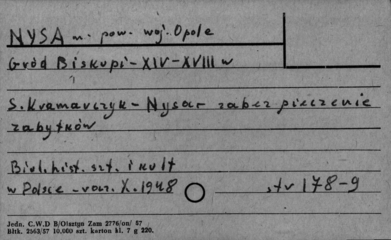 NYSA m. pow. woj. Opole
Gród Biskupi - XIV-XVIII w
S. Kramarczyk - Nysa - zabezpieczenie
zabytków
Biul. hist. szt. i kult
w Polsce - rocz. X. 1948 str 178-9
Jedn. C.W.D B/Olsztyn Zam 2776/on/ 57
Bltk. 2563/57 10.000 szt. karton kl. 7 g 220.